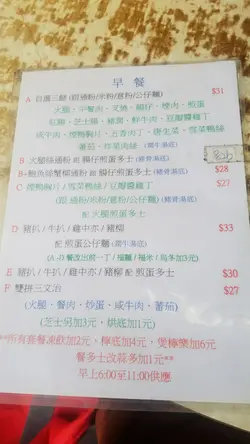 早餐
A 自選三餸 (跟通粉/米粉/意粉/公仔麵) $31
火腿、午餐肉、叉燒、腸仔、煙肉、煎蛋
紅腸、芝士腸、豬潤、鮮牛肉、豆瓣醬雞丁
咸牛肉、煙鴨胸片、五香肉丁、唐生菜、雪菜鴨絲
蕃茄、炸菜肉絲 (需牛湯底)
B 火腿絲通粉 跟 腸仔煎蛋多士 (豬骨湯底)
B 鮑魚絲蟹柳通粉 跟 腸仔煎蛋多士 (豬骨湯底) $28
C 煙鴨胸片/雪菜鴨絲/豆瓣醬雞丁 $27
(跟 通粉/米粉/意粉/公仔麵) (豬骨湯底)
配 火腿煎蛋多士
D 豬扒/牛扒/雞中亦/豬柳
配 煎蛋公仔麵 (需牛湯底) $33
(A-D) 餐改出前一丁/福麵/福米/烏冬加3元)
E 豬扒/牛扒/雞中亦/豬柳 配 煎蛋多士 $30
F 雙拼三文治 $27
(火腿、餐肉、炒蛋、咸牛肉、蕃茄)
(芝士另加3元、烘底加1元)
**所有套餐凍飲加2元,檸底加4元,煲檸樂加6元
餐多士改蒜多加1元**
早上6:00至11:00供應